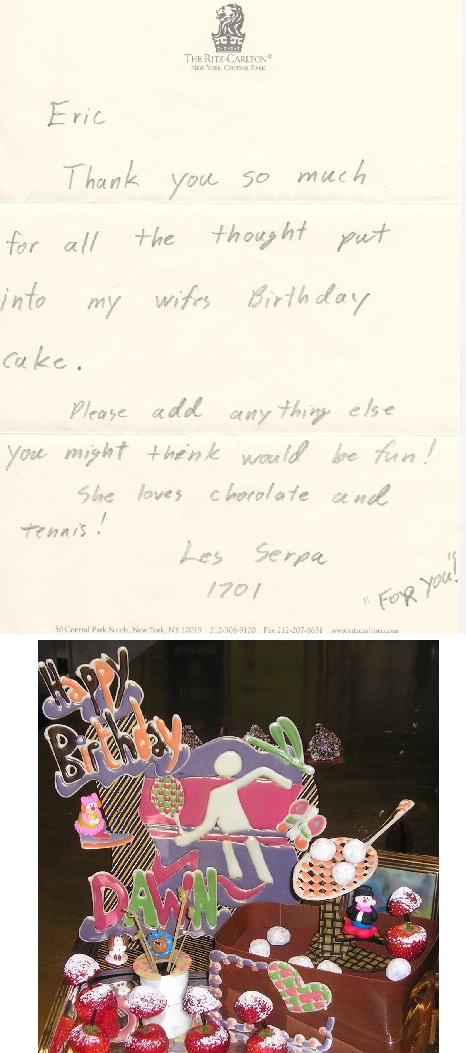 THE RITZ-CARLTON®
NEW YORK, CENTRAL PARK
Eric
Thank you so much
for all the thought put
into my wifes Birthday
cake.
Please add anything else
you might think would be fun!
She loves chocolate and
tennis!
Les Serpa
1701
"FOR YOU!"
50 Central Park South, New York, NY 10019 212-308-9100 Fax 212-207-8831 www.ritzcarlton.com
Happy
Birthday
DAWN